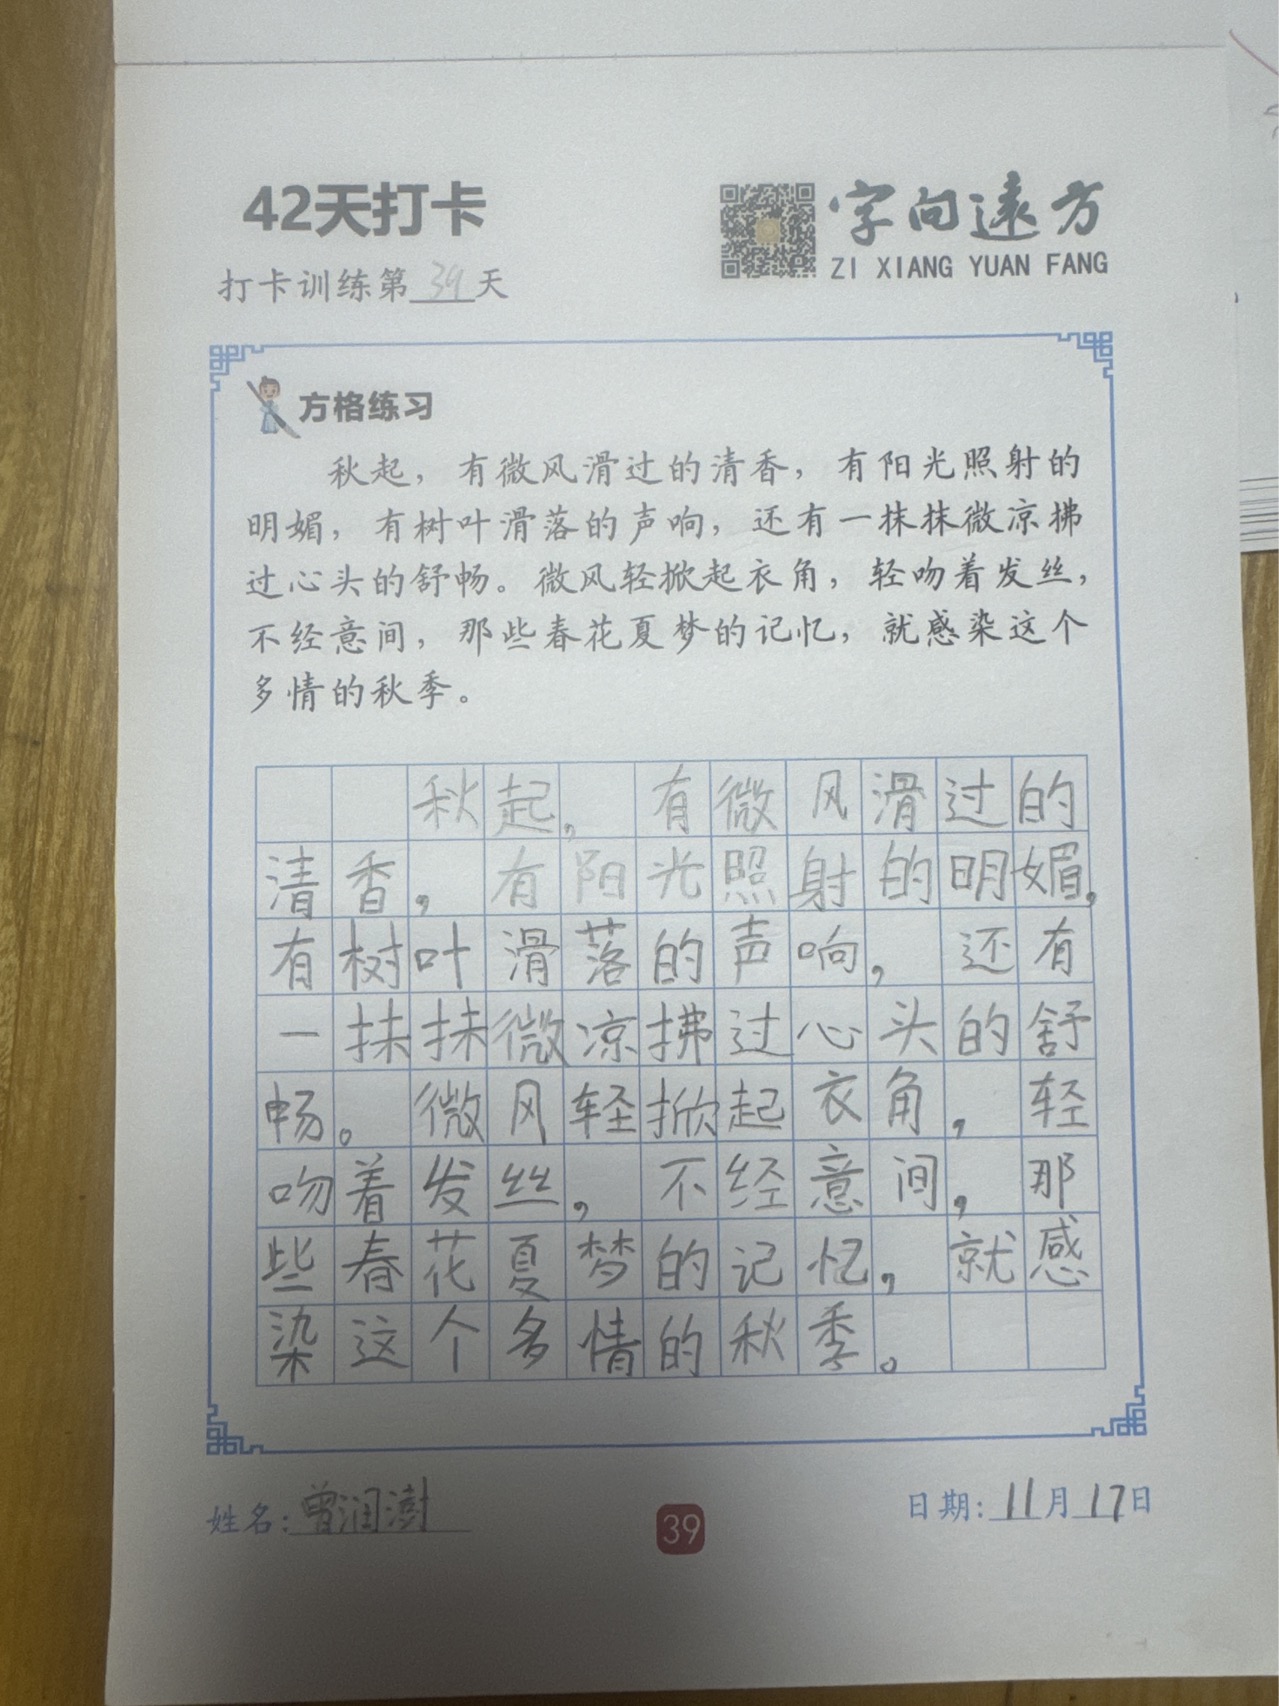 42天打卡
字向远方
ZI XIANG YUAN FANG
打卡训练第39天
方格练习
秋起，有微风滑过的清香，有阳光照射的
明媚，有树叶滑落的声响，还有一抹抹微凉拂
过心头的舒畅。微风轻掀起衣角，轻吻着发丝，
不经意间，那些春花夏梦的记忆，就感染这个
多情的秋季。
秋起，有微风滑过的
清香，有阳光照射的明媚，
有树叶滑落的声响，还有
一抹抹微凉拂过心头的舒
畅。微风轻掀起衣角，轻
吻着发丝，不经意间，那
些春花夏梦的记忆，就感
染这个多情的秋季。
姓名：曾润澍
39
日期：11月17日